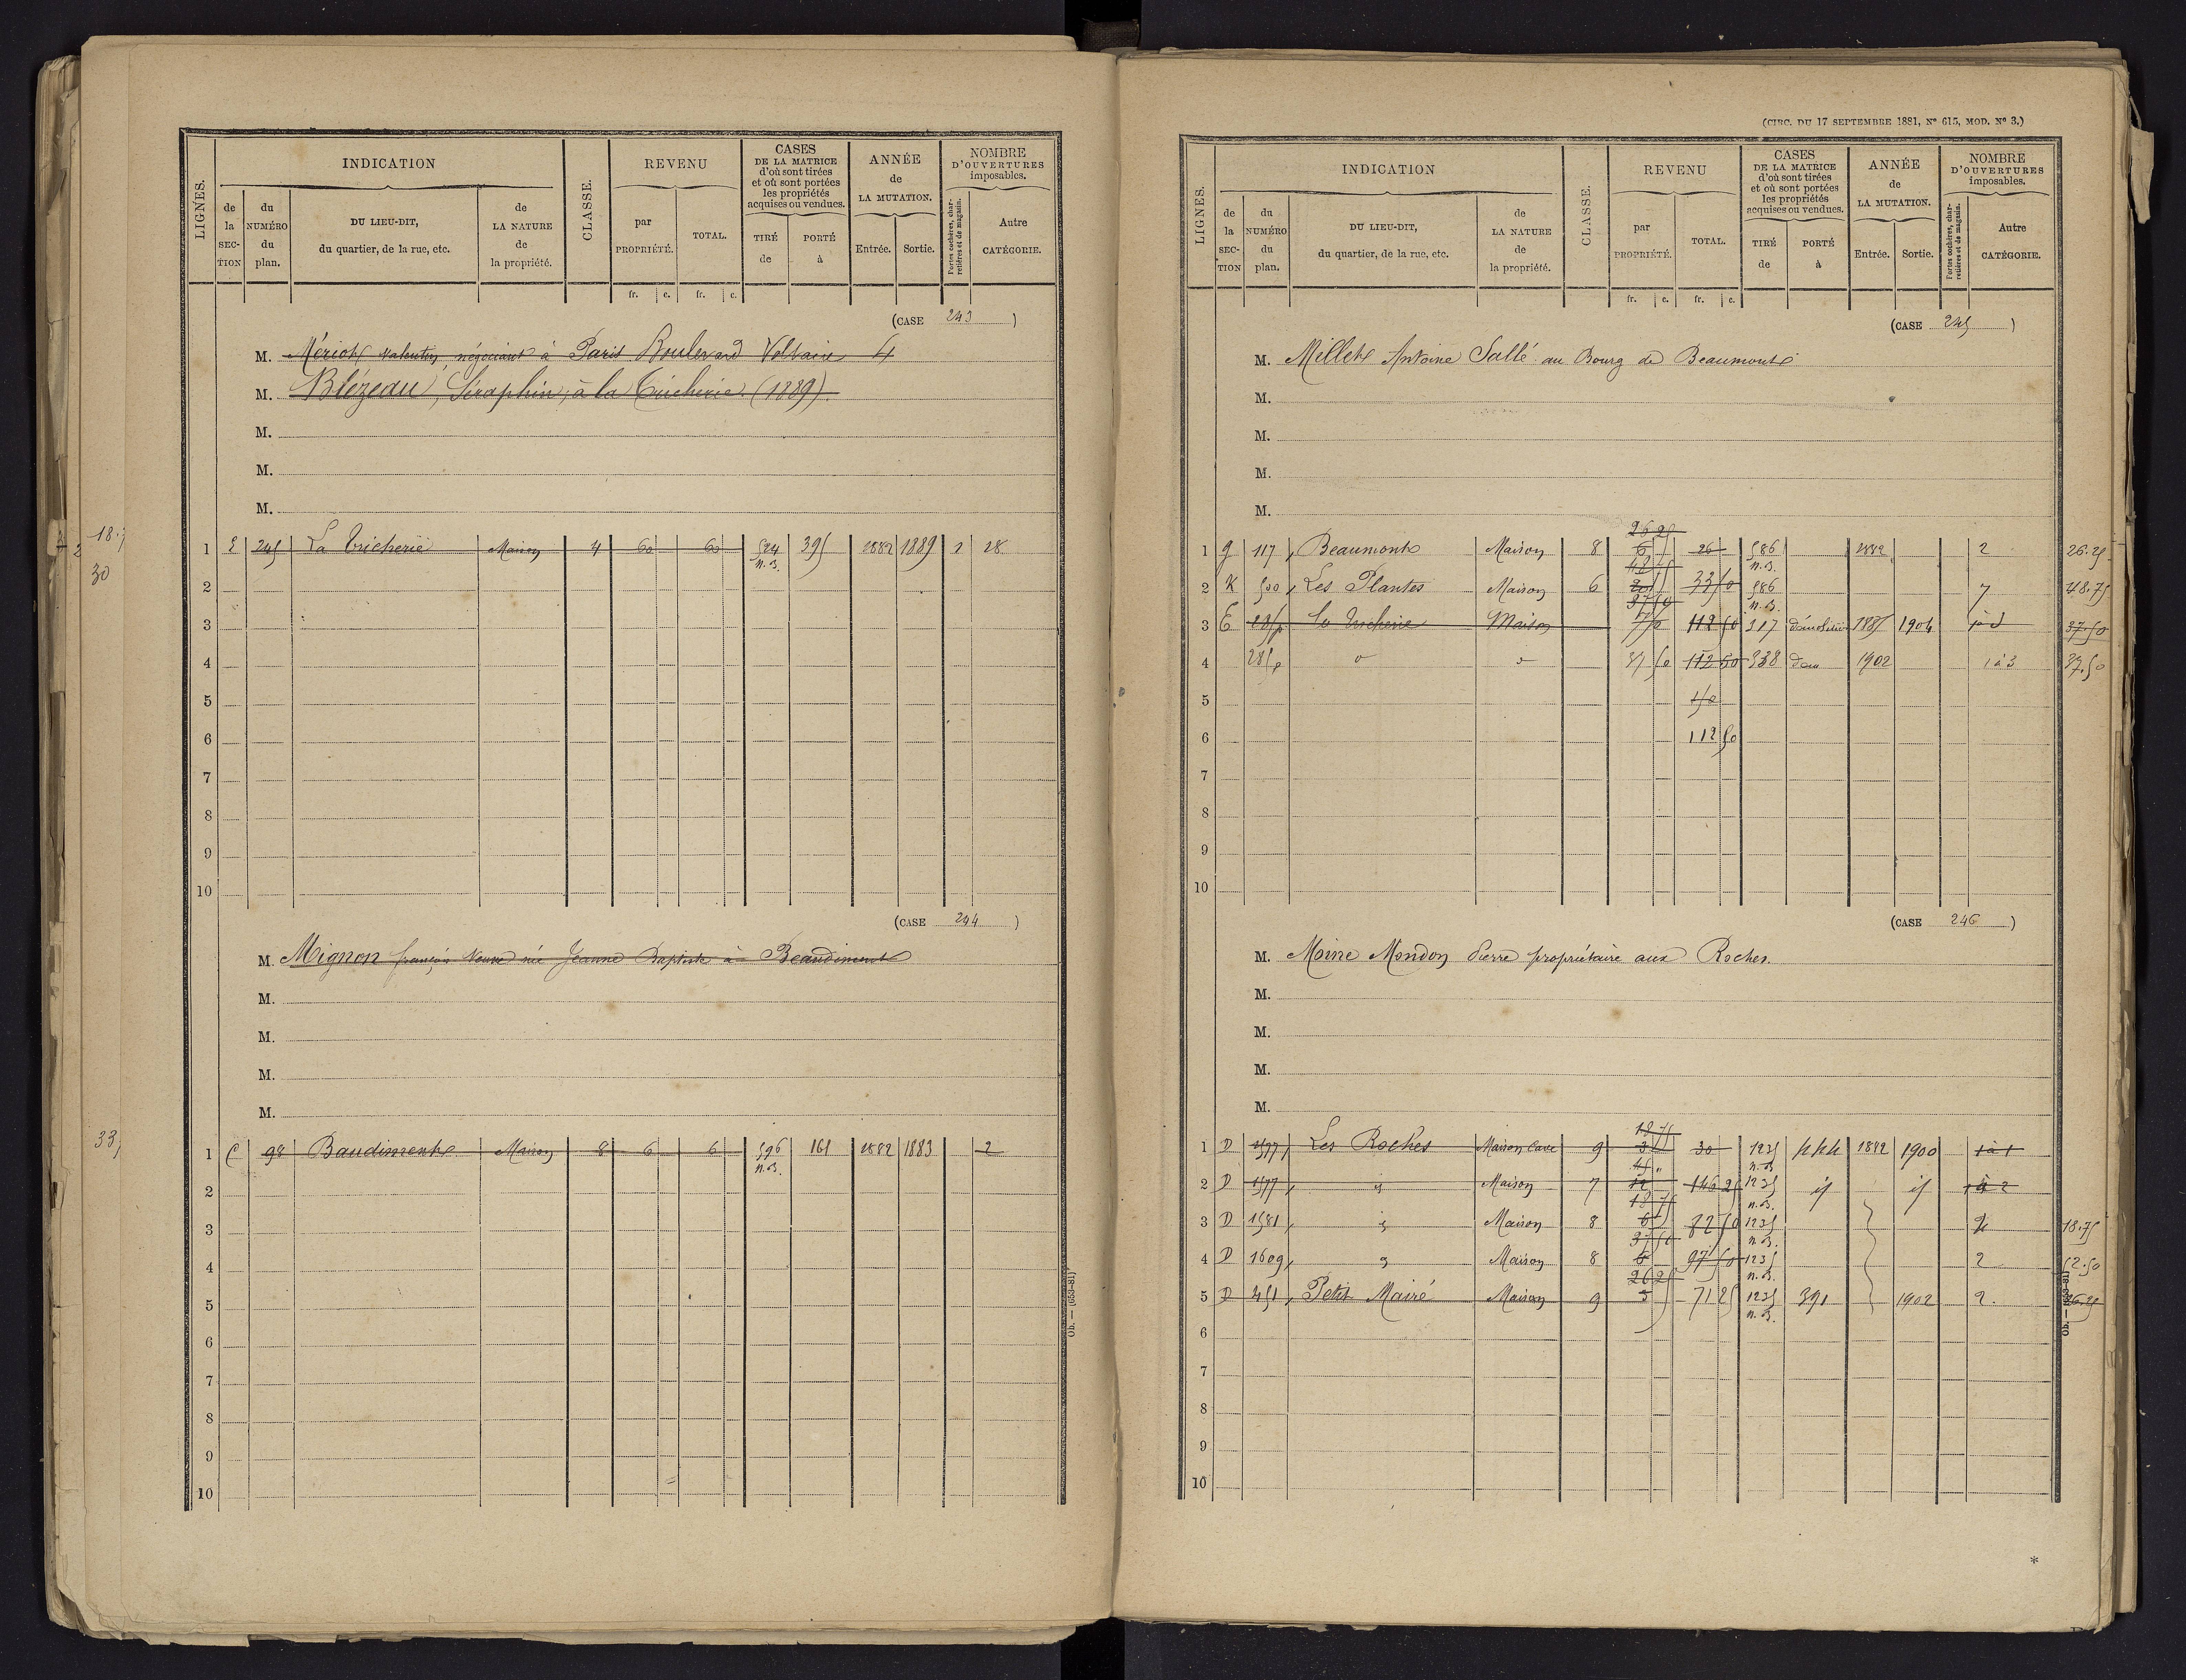 LIGNES.
INDICATION
de la SECTION
du NUMÉRO du plan.
DU LIEU-DIT, du quartier, de la rue, etc.
de LA NATURE de la propriété.
CLASSE.
REVENU
par PROPRIÉTÉ.
TOTAL.
CASES DE LA MATRICE d'où sont tirées et où sont portées les propriétés acquises ou vendues.
TIRÉ de
PORTÉ à
ANNÉE de LA MUTATION.
Entrée. Sortie.
NOMBRE D'OUVERTURES imposables.
Portes cochères, charretières et de magasin.
Autre CATÉGORIE.
fr. c. fr. c.
(CASE 243)
M. Mériot Valentin négociant à Paris Boulevard Voltaire 4
M. Blézeau, Séraphin, à la Tricherie (1889)
M.
M.
M.
1 E 245 La Tricherie Maison 4 60 60 524 395 1882 1889 2 28
n.B.
2
3
4
5
6
7
8
9
10
(CASE 244)
M. Mignon françois Veuve née Jeanne Baptiste à Beaudiment
M.
M.
M.
M.
1 C 98 Baudiment Maison 8 6 6 596 161 1882 1883 2
n.B.
2
3
4
5
6
7
8
9
10
Ob. — (653-81)
(CIRC. DU 17 SEPTEMBRE 1881, Nº 615, MOD. Nº 3.)
LIGNES.
INDICATION
de la SECTION
du NUMÉRO du plan.
DU LIEU-DIT, du quartier, de la rue, etc.
de LA NATURE de la propriété.
CLASSE.
REVENU
par PROPRIÉTÉ.
TOTAL.
CASES DE LA MATRICE d'où sont tirées et où sont portées les propriétés acquises ou vendues.
TIRÉ de
PORTÉ à
ANNÉE de LA MUTATION.
Entrée. Sortie.
NOMBRE D'OUVERTURES imposables.
Portes cochères, charretières et de magasin.
Autre CATÉGORIE.
fr. c. fr. c.
(CASE 245)
M. Millet Antoine Sallé au Bourg de Beaumont
M.
M.
M.
M.
26 25
1 g 117 Beaumont Maison 8 6 26 586 1882 2 26.25
48 75 n.B.
2 K 500 Les Plantes Maison 6 20 33 50 586 7 48.75
37 50 n.B.
3 E 285p La Tricherie Maison 7 50 112 50 317 démolition 1885 1904 37.50
4 285p 37 50 112 50 338 1902 1 à 3 37.50
5
6 112 50
7
8
9
10
(CASE 246)
M. Moine Mondon Pierre propriétaire aux Roches.
M.
M.
M.
M.
18 75
1 D 1577 Les Roches Maison Cave 9 3 30 1235 444 1882 1900 1 à 1
45 n.B.
2 D 1577 Maison 7 12 146 25 1235 1 à 2
18 75 n.B.
3 D 1581 Maison 8 6 72 50 1235 18.75
37 50 n.B.
4 D 1609 Maison 8 6 97 50 1235 2 52.50
26 25 n.B.
5 D 451 Petit Mairé Maison 9 3 71 25 1235 391 1902 2 26.25
n.B.
6
7
8
9
10
Ob. — (653-81)
*